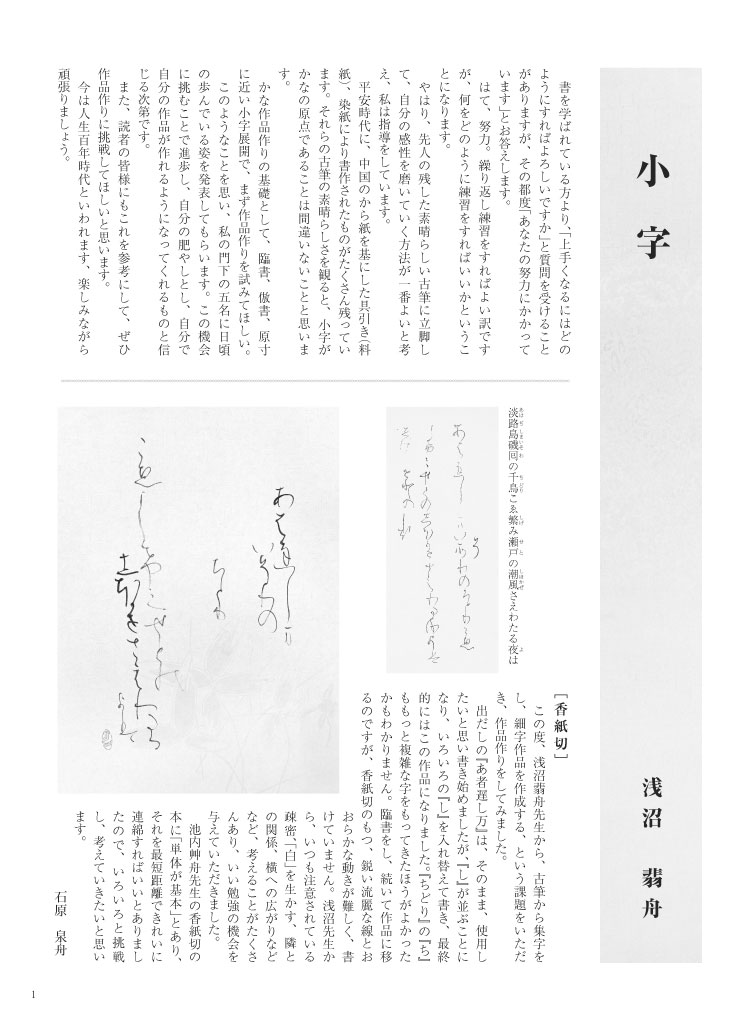 小字
浅沼　翡舟
　書を学ばれている方より、「上手くなるにはどの
ようにすればよろしいですか」と質問を受けること
がありますが、その都度「あなたの努力にかかって
います」とお答えします。
　はて、努力。繰り返し練習をすればよい訳です
が、何をどのように練習をすればいいかというこ
とになります。
　やはり、先人の残した素晴らしい古筆に立脚し
て、自分の感性を磨いていく方法が一番よいと考
え、私は指導をしています。
　平安時代に、中国のから紙を基にした具引き(料
紙)、染紙により書作されたものがたくさん残ってい
ます。それらの古筆の素晴らしさを観ると、小字が
かなの原点であることは間違いないことと思いま
す。
　かな作品作りの基礎として、臨書、倣書、原寸
に近い小字展開で、まず作品作りを試みてほしい。
　このようなことを思い、私の門下の五名に日頃
の歩んでいる姿を発表してもらいます。この機会
に挑むことで進歩し、自分の肥やしとし、自分で
自分の作品が作れるようになってくれるものと信
じる次第です。
　また、読者の皆様にもこれを参考にして、ぜひ
作品作りに挑戦してほしいと思います。
　今は人生百年時代といわれます、楽しみながら
頑張りましょう。
淡路島磯回の千鳥こゑ繁み瀬戸の潮風さえわたる夜は
［香紙切］
　この度、浅沼翡舟先生から、古筆から集字を
し、細字作品を作成する、という課題をいただ
き、作品作りをしてみました。
　出だしの『あ者遅し万』は、そのまま、使用し
たいと思い書き始めましたが、『し』が並ぶことに
なり、いろいろの『し』を入れ替えて書き、最終
的にはこの作品になりました。『ちどり』の『ち』
ももっと複雑な字をもってきたほうがよかった
かもわかりません。臨書をし、続いて作品に移
るのですが、香紙切のもつ、鋭い流麗な線とお
おらかな動きが難しく、書
けていません。浅沼先生か
ら、いつも注意されている
疎密、「白」を生かす、隣と
の関係、横への広がりなど
など、考えることがたくさ
んあり、いい勉強の機会を
与えていただきました。
　池内艸舟先生の香紙切の
本に「単体が基本」とあり、
それを最短距離できれいに
連綿すればいいとありまし
たので、いろいろと挑戦
し、考えていきたいと思い
ます。
石原　泉舟
1